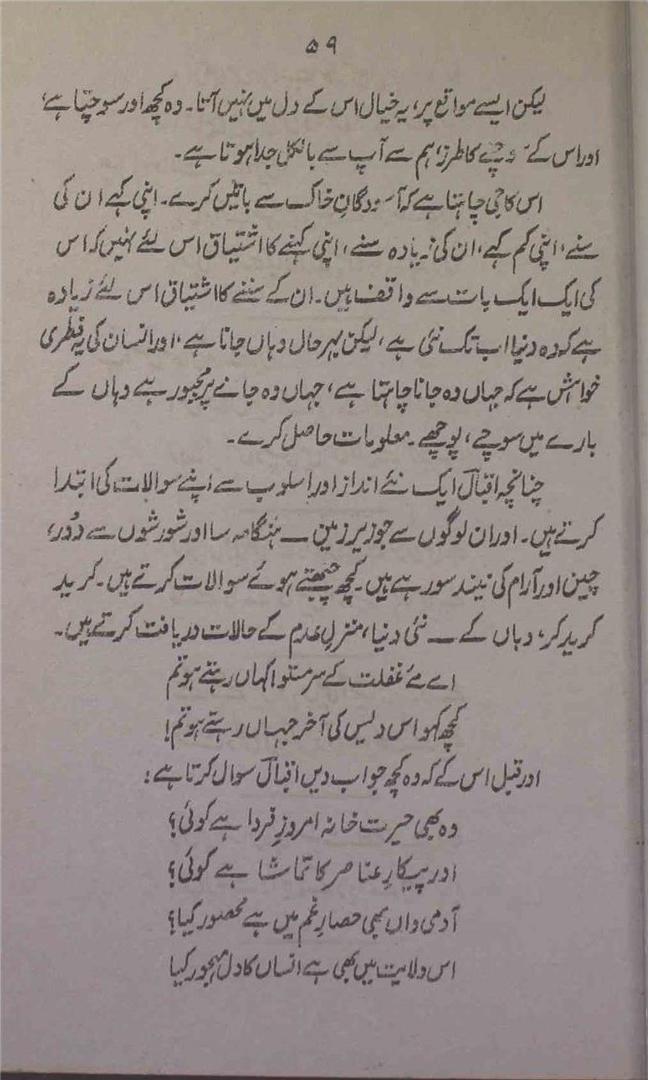 ۵۹
لیکن ایسے مواقع پر، یہ خیال اس کے دل میں نہیں آتا۔ وہ کچھ اور سوچتا ہے،
اور اس کے سوچنے کا طرز، ہم سے آپ سے بالکل جدا ہوتا ہے۔
اس کا جی چاہتا ہے کہ آسودگانِ خاک سے باتیں کرے۔ اپنی کہے ان کی
سنے، اپنی کم کہے، ان کی زیادہ سنے، اپنی کہنے کا اشتیاق اس لئے نہیں کہ اس
کی ایک ایک بات سے واقف ہیں۔ ان کے سننے کا اشتیاق اس لئے زیادہ
ہے کہ وہ دنیا اب تک نئی ہے، لیکن بہرحال وہاں جانا ہے، اور انسان کی یہ فطری
خواہش ہے کہ جہاں وہ جانا چاہتا ہے، جہاں وہ جانے پر مجبور ہے وہاں کے
بارے میں سوچے، پوچھے۔ معلومات حاصل کرے۔
چنانچہ اقبالؔ ایک نئے انداز اور اسلوب سے اپنے سوالات کی ابتدا
کرتے ہیں۔ اور ان لوگوں سے جو زیرِ زمین ــ ہنگامہ سا اور شورشوں سے دُور،
چین اور آرام کی نیند سو رہے ہیں۔ کچھ چبھتے ہوئے سوالات کرتے ہیں۔ کرید
کرید کر، وہاں کے ــ نئی دنیا، منزلِ عدم کے حالات دریافت کرتے ہیں۔
اے مئے غفلت کے سرمستو! کہاں رہتے ہو تم
کچھ کہو اس دیس کی آخر جہاں رہتے ہو تم!
اور قبل اس کے کہ وہ کچھ جواب دیں اقبالؔ سوال کرتا ہے:
وہ بھی حیرت خانہ امروز فردا ہے کوئی؟
اور پیکارِ عناصر کا تماشا ہے کوئی؟
آدمی واں بھی حصارِ غم میں ہے محصور کیا؟
اس ولایت میں بھی ہے انساں کا دل مجبور کیا